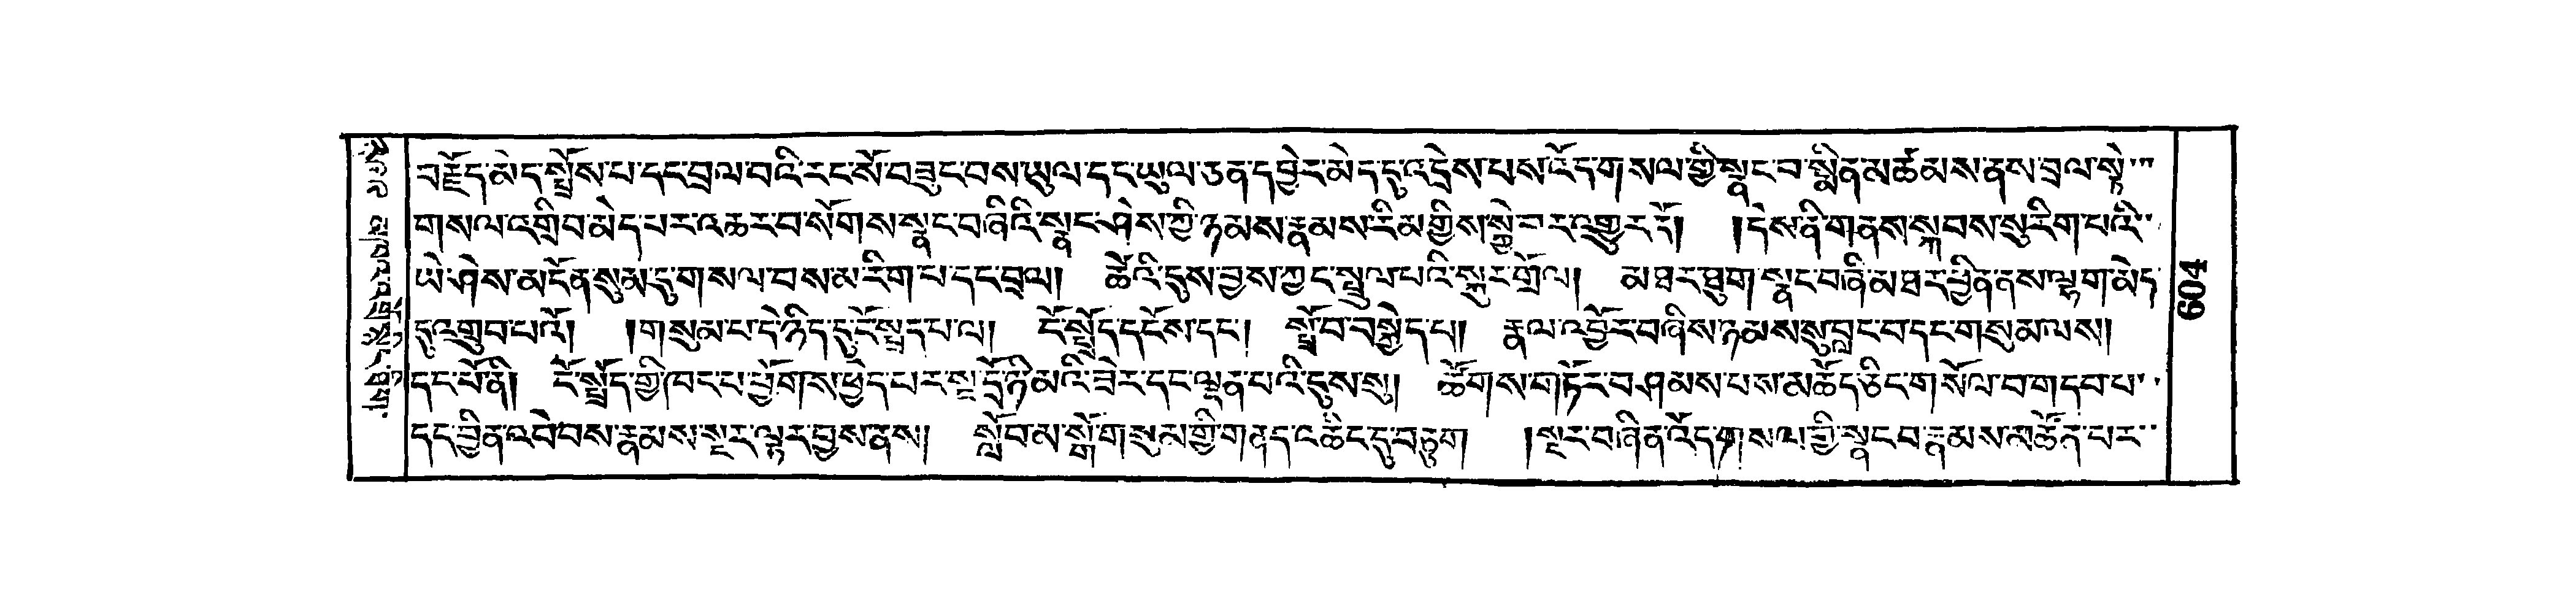 བརྗོད་མེད་སྤྲོས་པ་དང་བྲལ་བའི་རང་སོ་བཟུང་བས་ཡུལ་དང་ཡུལ་ཅན་དབྱེར་མེད་དུ་འདྲེས་པས་འོད་གསལ་གྱི་སྣང་བ་སྨིན་མཚམས་ནས་བྲལ་སྟེ་
གསལ་འགྲིབ་མེད་པར་འཆར་བ་སོགས་སྣང་བཞིའི་སྣང་ཤེས་ཀྱི་ཉམས་རྣམས་རིམ་གྱིས་སྐྱེ་བར་འགྱུར་རོ། །དེས་ནི་གནས་སྐབས་སུ་རིག་པའི་
ཡེ་ཤེས་མངོན་སུམ་དུ་གསལ་བས་མ་རིག་པ་དང་བྲལ། ཚེའི་དུས་བྱས་ཀྱང་སྤྲུལ་པའི་སྐུར་གྲོལ། མཐར་ཐུག་སྣང་བཞི་མཐར་ཕྱིན་ནས་ལྷག་མེད་
དུ་འགྲུབ་པའོ། །གསུམ་པ་དེ་ཉིད་དུ་ངོ་སྤྲད་པ་ལ། ངོ་སྤྲོད་དངོས་དང་། སྤྲོ་བ་བསྐྱེད་པ། རྣལ་འབྱོར་བཞིས་ཉམས་སུ་བླང་བ་དང་གསུམ་ལས།
དང་པོ་ནི། ངོ་སྤྲོད་ཀྱི་ཁང་པ་ཕྱོགས་ཕྱེད་པར་སྔ་དྲོ་ཉི་མའི་ཟེར་དང་ལྡན་པའི་དུས་སུ། ཚོགས་གཏོར་བཤམས་པས་མཆོད་ཅིང་གསོལ་བ་གདབ་པ་
དང་བྱིན་འབེབས་རྣམས་སྔར་ལྟར་བྱས་ནས། སློབ་མ་སྒོ་གསུམ་གྱི་གནད་འཆིང་དུ་བཅུག །སྔར་བཞིན་འོད་གསལ་གྱི་སྣང་བ་རྣམས་མཚོན་པར་